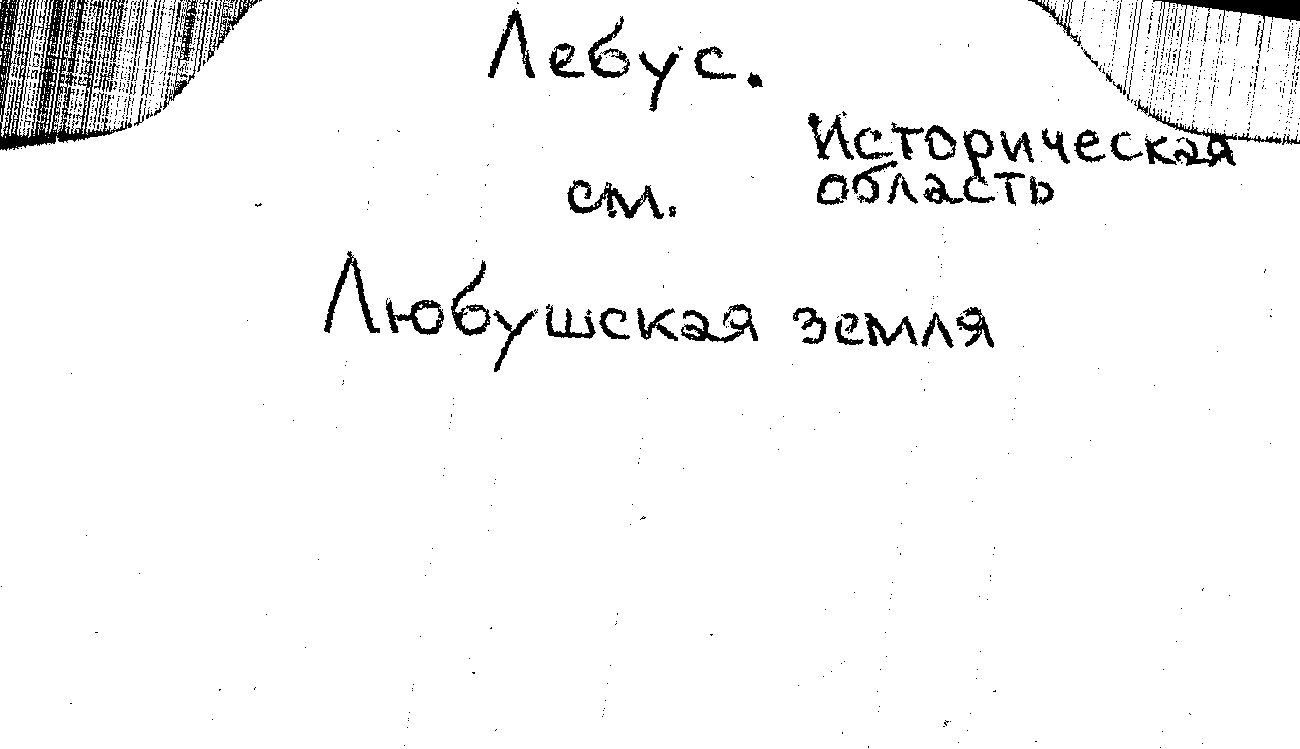 Лебус.
Историческая
область
см.
Любушская земля